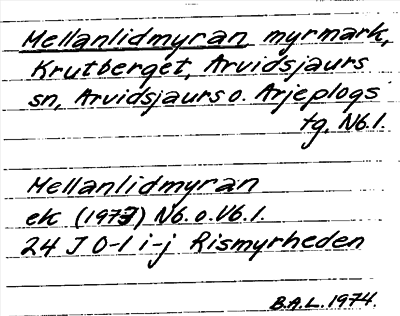 Mellanlidmyran myrmark,
Krutberget, Arvidsjaurs
sn, Arvidsjaurs o. Arjeplogs
tg, Nb.l.
Mellanlidmyran
ek (1973) Nb. o. Vb. l.
24 J 0-1 i-j Rismyrheden
B.A.L. 1974.